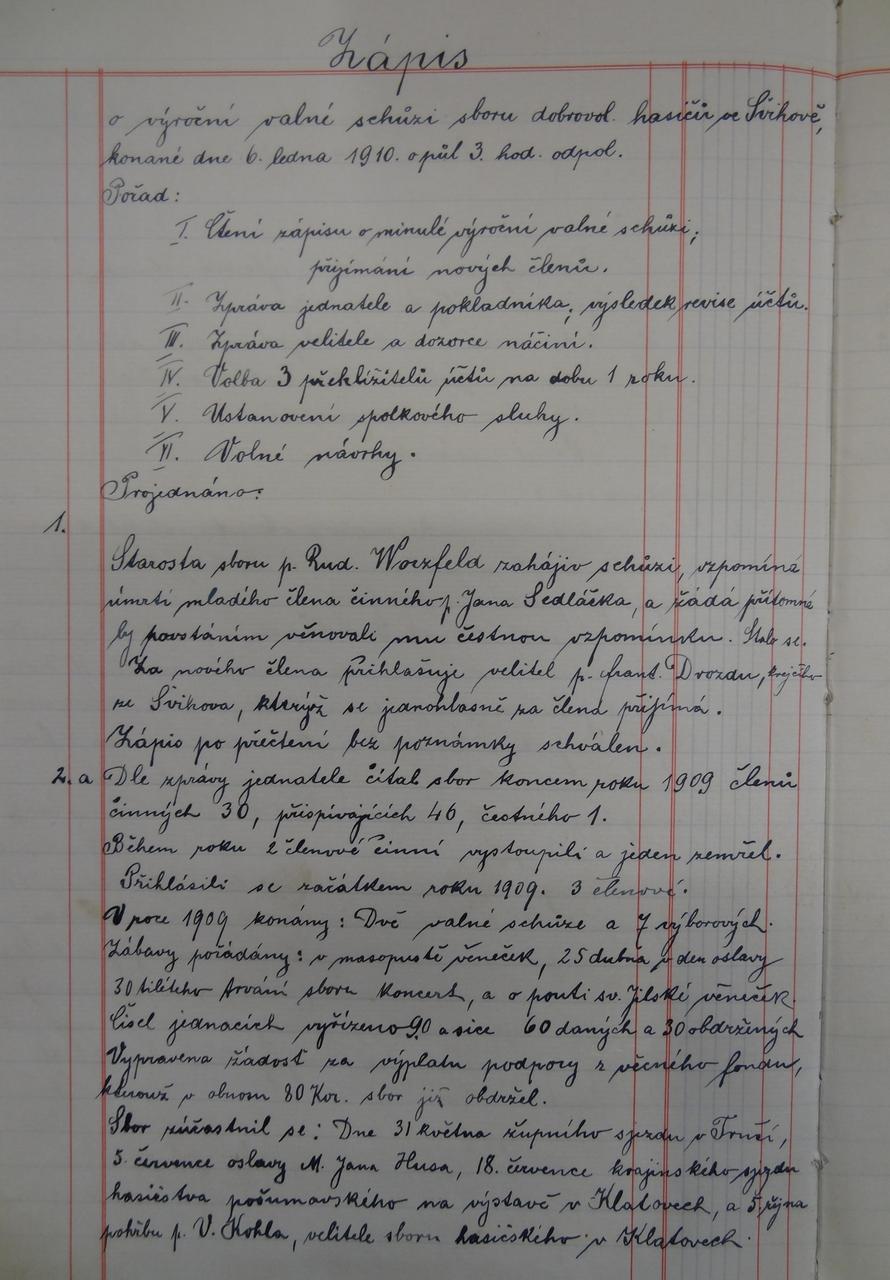 Zápis
o výroční valné schůzi sboru dobrovol. hasičů ve Švihově,
konané dne 6. ledna 1910. o půl 3. hod. odpol.
Pořad:
I. Čtení zápisu o minulé výroční valné schůzi;
přijímání nových členů.
II. Zpráva jednatele a pokladníka; výsledek revise účtů.
III. Zpráva velitele a dozorce náčiní.
IV. Volba 3 překližitelů účtů na dobu 1 roku.
V. Ustanovení spolkového sluhy.
VI. Volné návrhy.
Projednáno:
1.
Starosta sboru p. Rud. Worzfeld zahájiv schůzi, vzpomíná
úmrtí mladého člena činného p. Jana Sedláčka, a žádá přítomné
by povstáním věnovali mu čestnou vzpomínku. Stalo se.
Za nového člena přihlašuje velitel p. Frant. Drozdu, krejčího
ze Švihova, kterýž se jednohlasně za člena přijímá.
Zápis po přečtení bez poznámky schválen.
2. a Dle zprávy jednatele čítal sbor koncem roku 1909 členů
činných 30, přispívajících 46, čestného 1.
Během roku 2 členové činní vystoupili a jeden zemřel.
Přihlásili se začátkem roku 1909. 3 členové.
V roce 1909 konány: Dvě valné schůze a 7 výborových.
Zábavy pořádány: v masopustě věneček, 25 dubna v den oslavy
30tiletého trvání sboru koncert, a o pouti sv. Jilské věneček.
Čísel jednacích vyřízeno 90 a sice 60 daných a 30 obdržených
Vypravena žádost za výplatu podpory z věcného fondu,
kterouž v obnosu 80 Kor. sbor již obdržel.
Sbor zúčastnil se: Dne 31 května župního sjezdu v
5. července oslavy M. Jana Husa, 18. července krajinského sjezdu
hasičstva pošumavského na výstavě v Klatovech, a 5. října
pohřbu p. V. Kohla, velitele sboru hasičského v Klatovech.